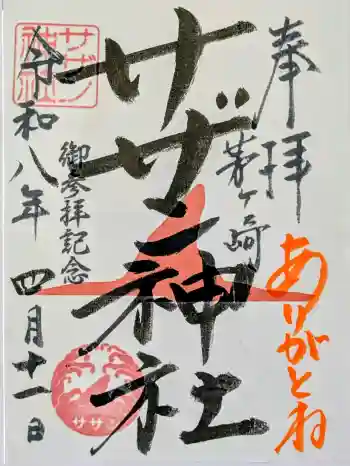 奉拝
ありがとね
茅ヶ崎
サザ神社
御参拝記念
令和八年四月十一日
サザン
神社